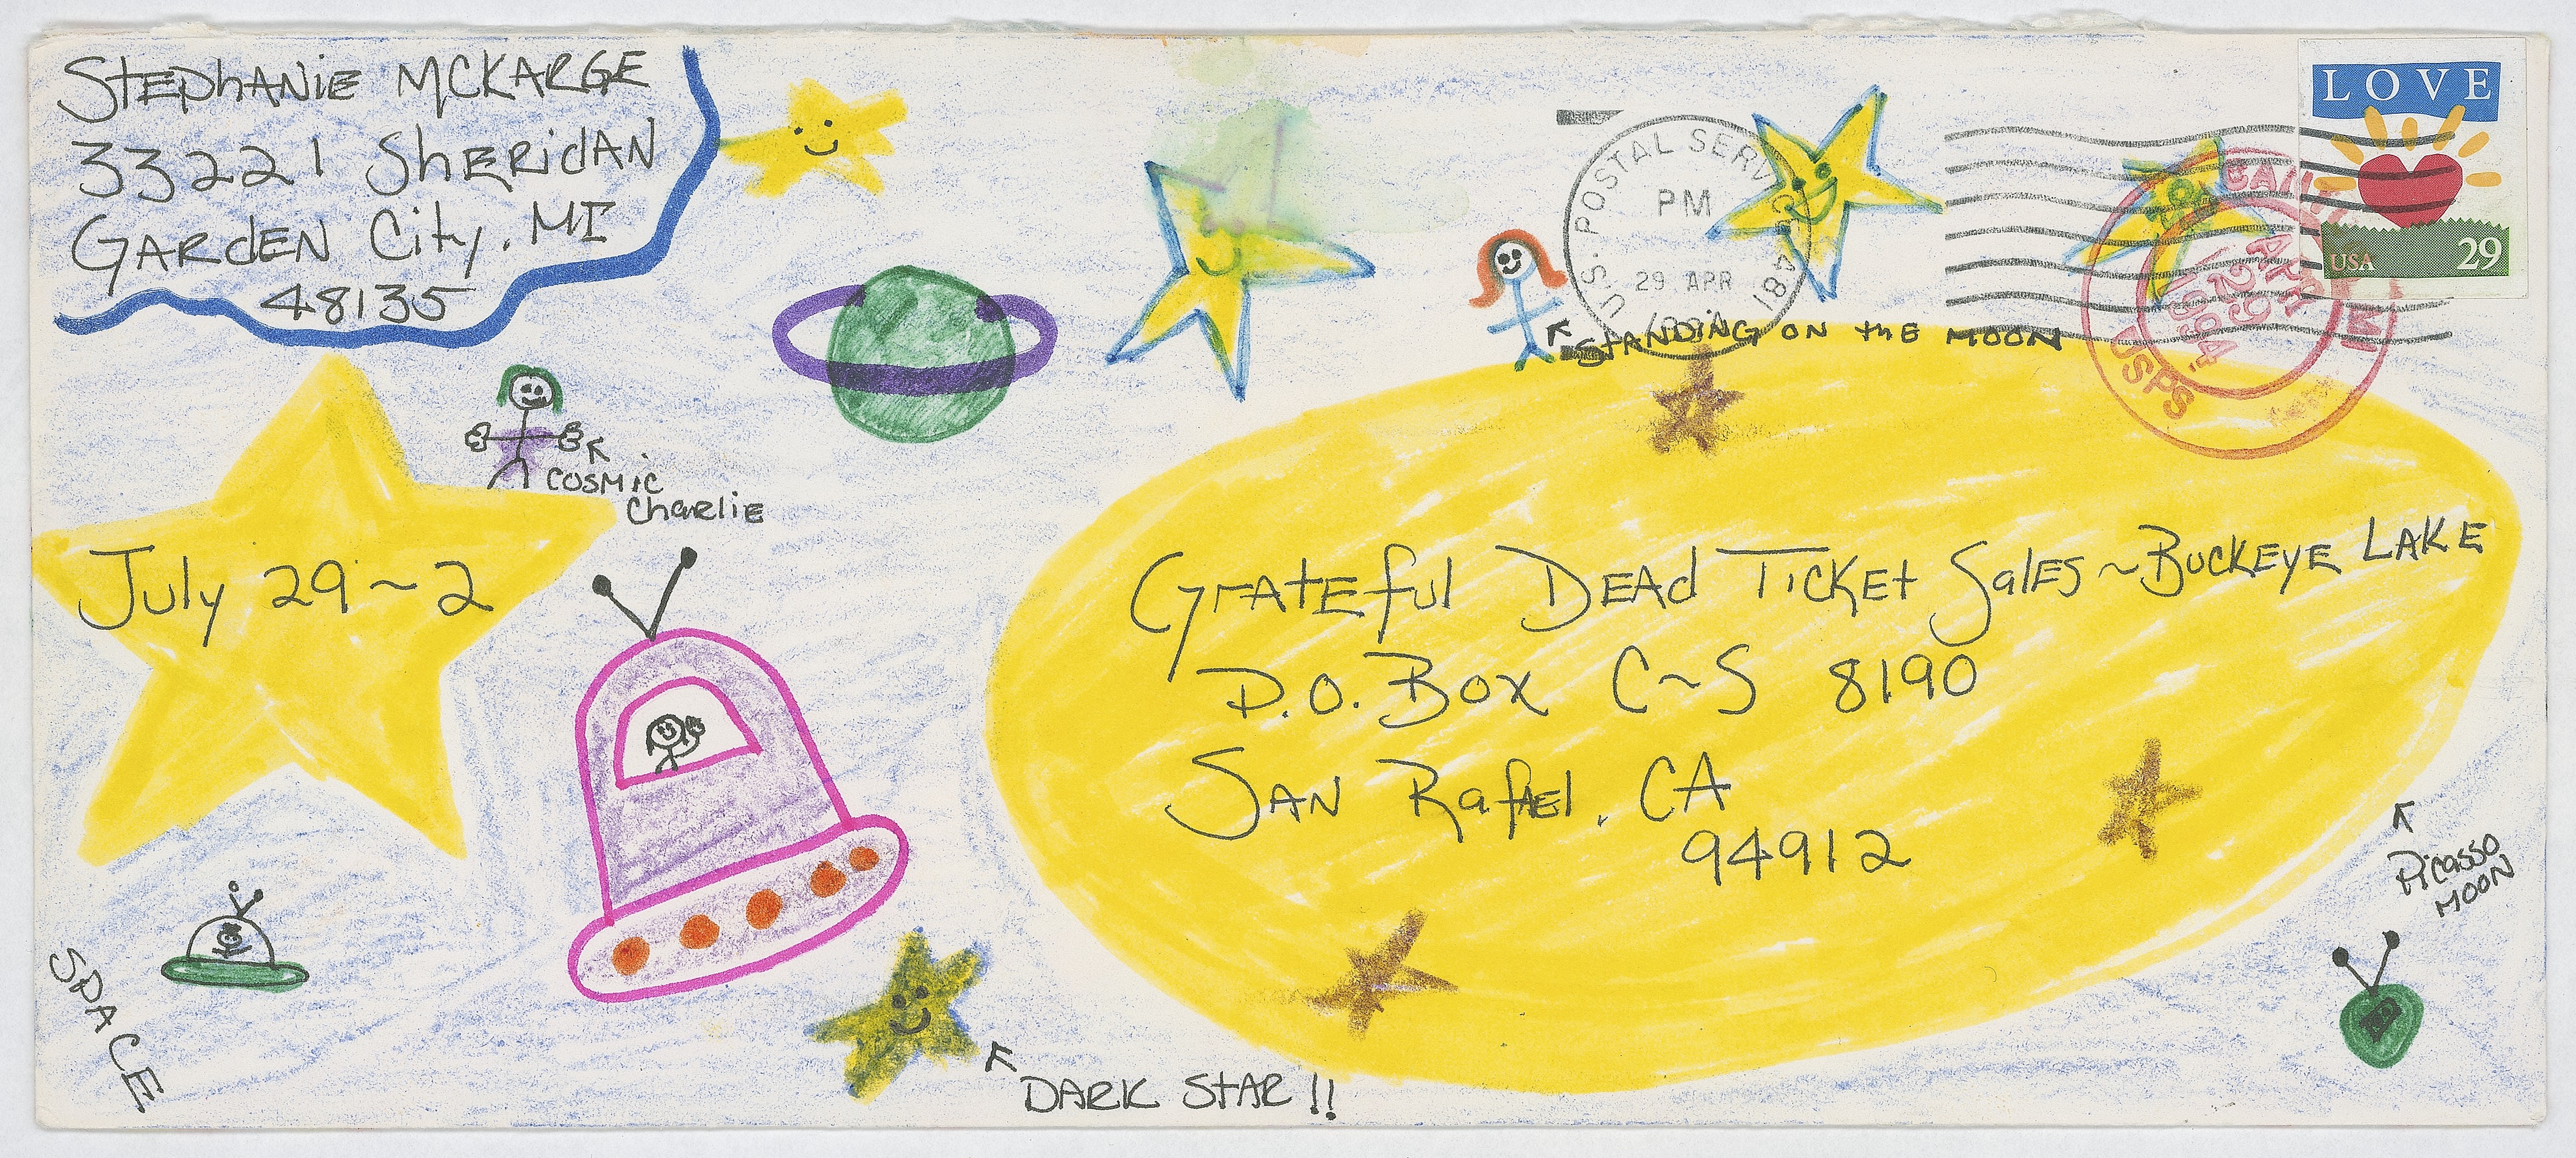 Stephanie McKarge
33221 Sheridan
Garden City, MI
48135
LOVE
USA 29
U.S. POSTAL SERVICE 481
PM
29 APR
1994
APR
29
1994
USPS
Standing on the Moon
Cosmic
Charlie
July 29~2
Grateful Dead Ticket Sales~Buckeye Lake
P.O. Box C~S 8190
San Rafael, CA
94912
Picasso
Moon
SPACE
DARK STAR!!